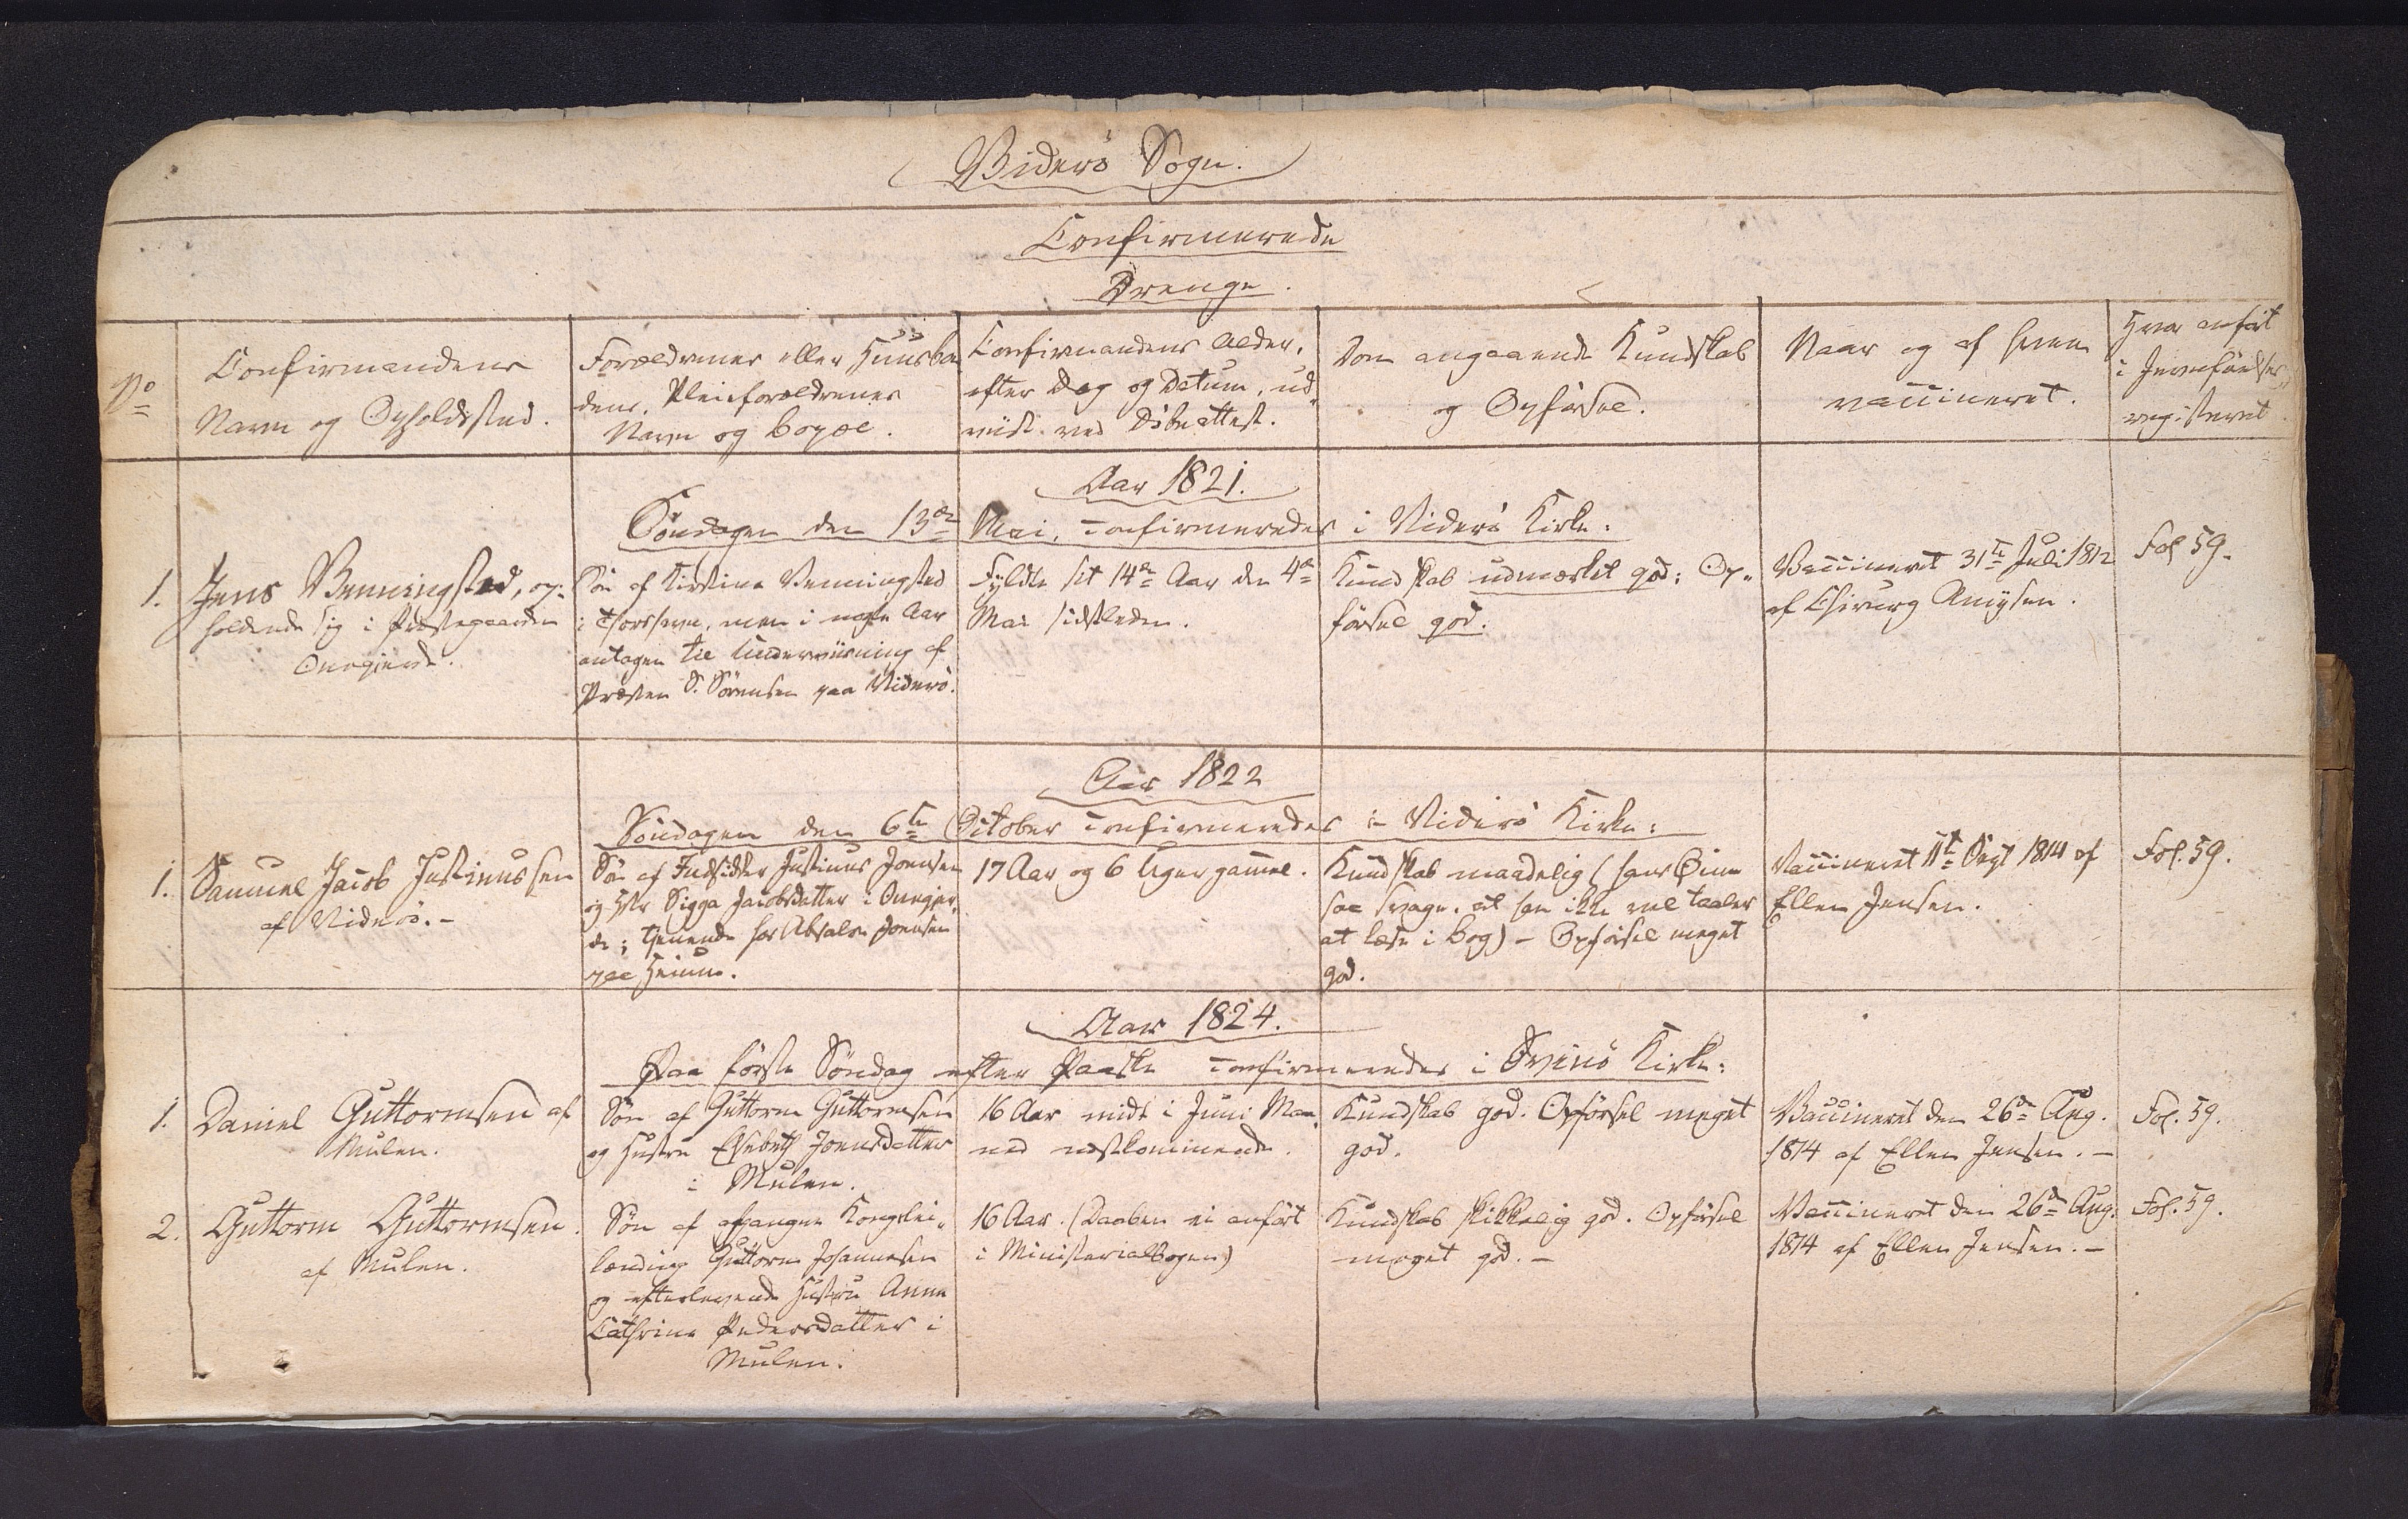 Viderö Sogn.
Confirmerede
Drenge.
No
Confirmandens
Navn og Opholdssted.
Forældrenes eller Huusbon
dens, Pleieforældrenes
Navn og bopæl.
Confirmandens Alder,
efter Dag og Datum, ud„
viist ved Döbeattest.
Dom angaaende Kundskab
og Opförsel.
Naar og af hvem
vaccineret.
Hvor anfört
i Jevnförelses„
registeret.
Aar 1821.
Söndagen den 13de Mai, confirmeredes i Viderö Kirke:
1. Jens Benningsted, op:
holdende sig i Præstegaarden
Onegjerde.
Sön af Kirstine Benningsted
i Thorshavn, men i nogle Aar
antagen til Underviisning af
Præsten S. Sörensen paa Viderö.
Fyldte sit 14de Aar den 4de
Mai sidstleden.
Kundskab udmærket god; Op„
försel god.
Vaccineret 31te Juli 1812
af Chirurg Amÿsen.
Fol 59.
Aar 1822
Söndagen den 6te October confirmeredes i Viderö Kirke:
1. Samuel Jacob Justinussen
af Viderö. -
Sön af Indsidder Justinus Joensen
og Hstr Sigga Jacobsdatter i Onegjer„
de; tjenende hos Absalon Joensen
paa Heimæ.
17 Aar og 6 Uger gammel.
Kundskab maadelig (hans Öine
saa svage, at han ikke vel taaler
at læse i bog) - Opförsel meget
god.
Vaccineret 11te Sept 1814 af
Ellen Jensen.
Fol. 59.
Aar 1824.
Paa förste Söndag efter Paaske confirmeredes i Svinö Kirke:
1. Daniel Guttormsen af
Mulen.
Sön af Guttorm Guttormsen
og Hustru Elsebeth Joensdatter
i Mulen.
16 Aar midt i Juni Maa„
ned næstkommende.
Kundskab god. Opförsel meget
god.
Vaccineret den 26de Aug.
1814 af Ellen Jensen. -
Fol. 59.
2. Guttorm Guttormsen
af Mulen.
Sön af afgangne Kongslei„
lending Guttorm Johannesen
og efterlevende Hustru Anna
Cathrine Pedersdatter i
Mulen.
16 Aar. (Daaben ei anfört
i Ministerialbogen)
Kundskab skikkelig god. Opförsel
meget god. -
Vaccineret den 26de Aug.
1814 af Ellen Jensen. -
Fol. 59.